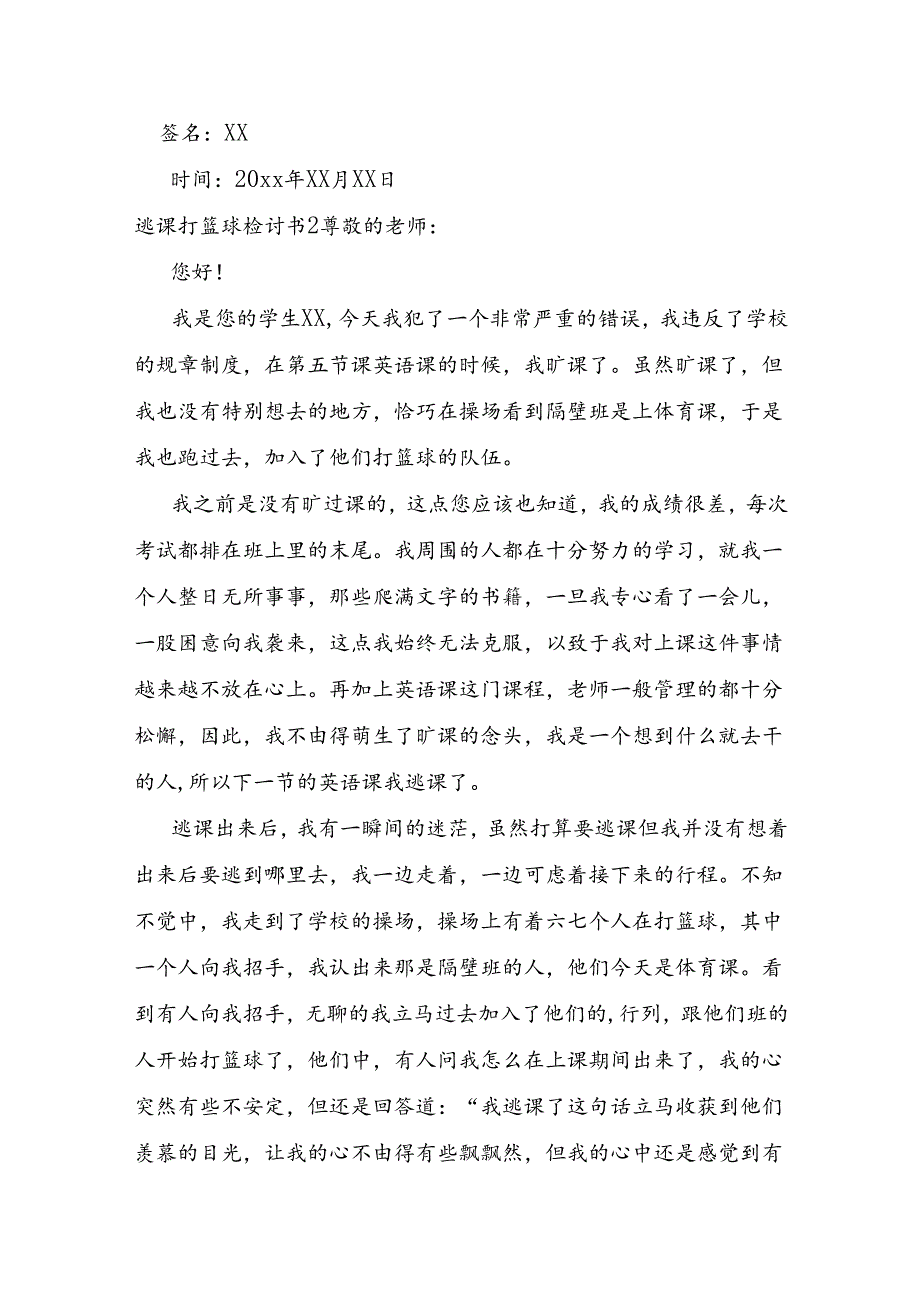 签名：XX
时间：20xx年XX月XX日
逃课打篮球检讨书2尊敬的老师：
您好！
我是您的学生XX,今天我犯了一个非常严重的错误，我违反了学校
的规章制度，在第五节课英语课的时候，我旷课了。虽然旷课了，但
我也没有特别想去的地方，恰巧在操场看到隔壁班是上体育课，于是
我也跑过去，加入了他们打篮球的队伍。
我之前是没有旷过课的，这点您应该也知道，我的成绩很差，每次
考试都排在班上里的末尾。我周围的人都在十分努力的学习，就我一
个人整日无所事事，那些爬满文字的书籍，一旦我专心看了一会儿，
一股困意向我袭来，这点我始终无法克服，以致于我对上课这件事情
越来越不放在心上。再加上英语课这门课程，老师一般管理的都十分
松懈，因此，我不由得萌生了旷课的念头，我是一个想到什么就去干
的人,所以下一节的英语课我逃课了。
逃课出来后，我有一瞬间的迷茫，虽然打算要逃课但我并没有想着
出来后要逃到哪里去，我一边走着，一边可虑着接下来的行程。不知
不觉中，我走到了学校的操场，操场上有着六七个人在打篮球，其中
一个人向我招手，我认出来那是隔壁班的人，他们今天是体育课。看
到有人向我招手，无聊的我立马过去加入了他们的,行列，跟他们班的
人开始打篮球了，他们中，有人问我怎么在上课期间出来了，我的心
突然有些不安定，但还是回答道：“我逃课了这句话立马收获到他们
羡慕的目光，让我的心不由得有些飘飘然，但我的心中还是感觉到有